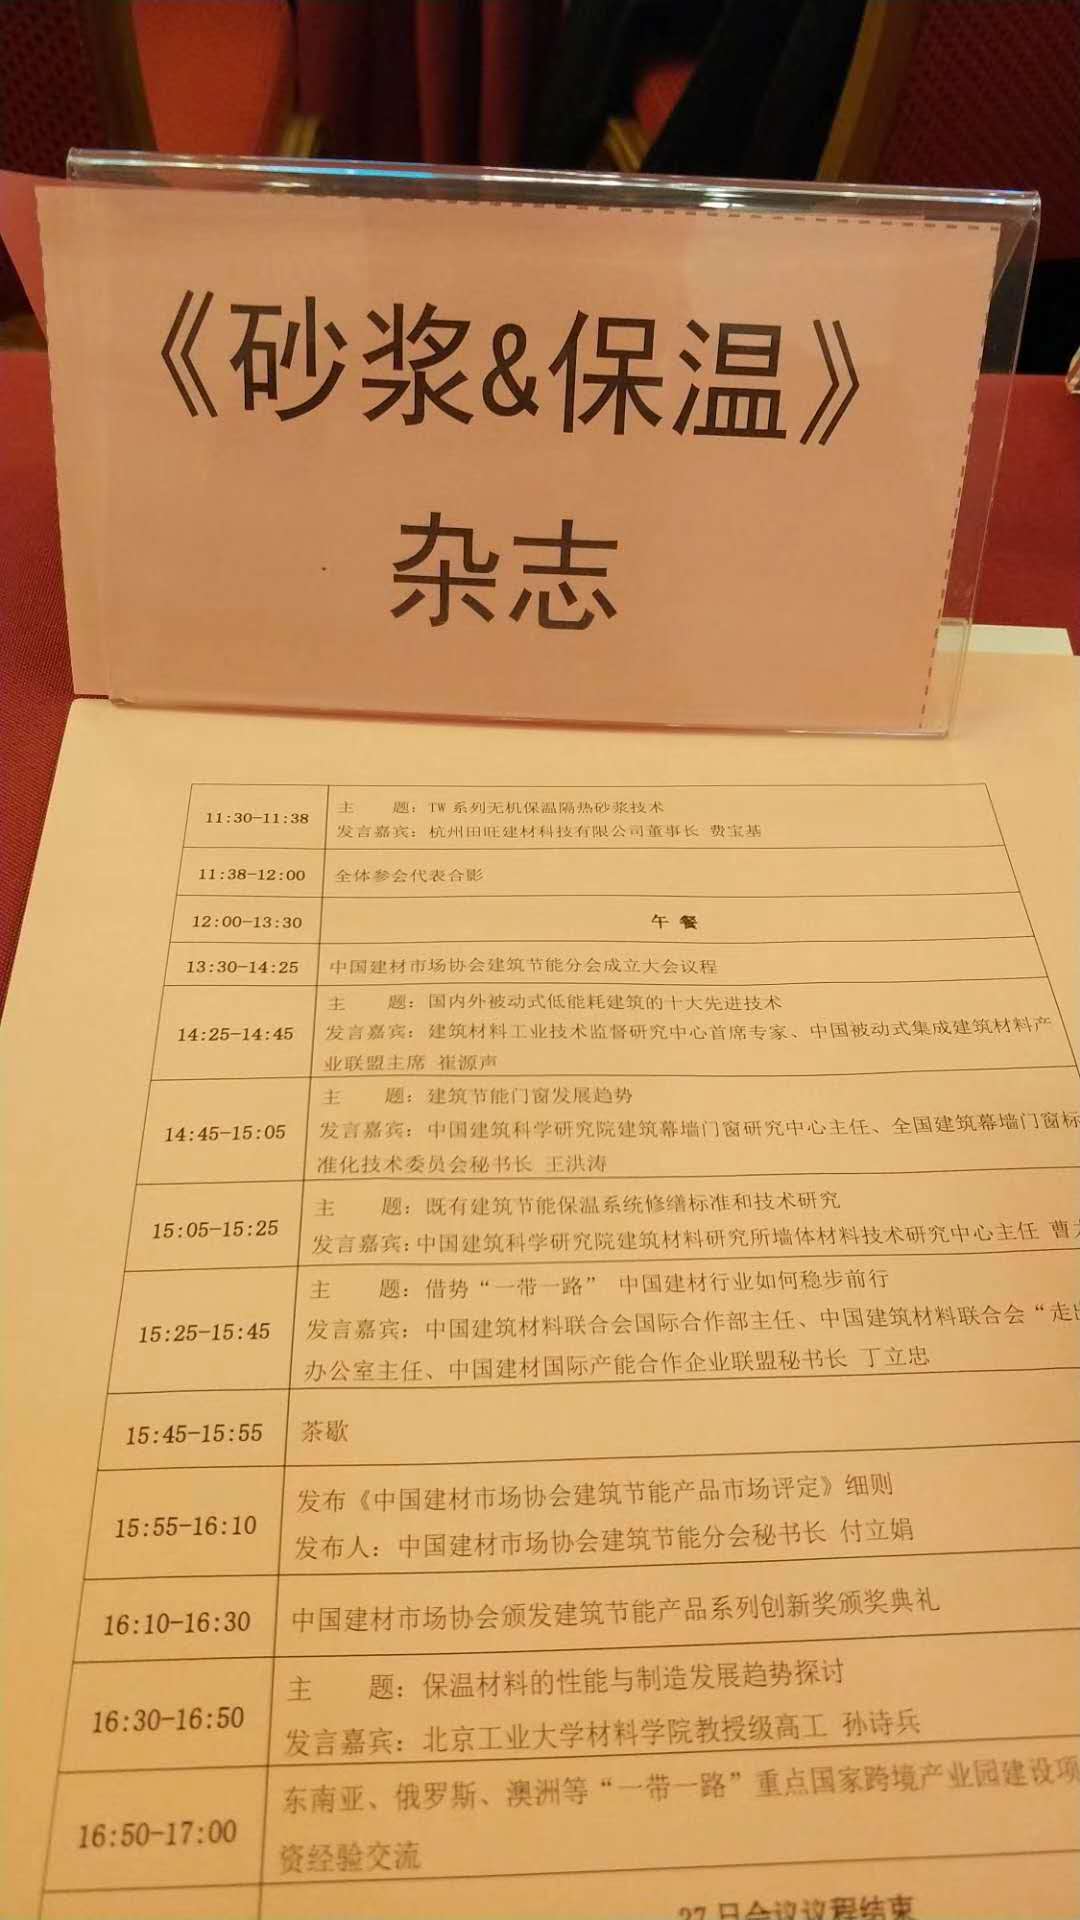 《砂浆&保温》
杂志
11:30-11:38
主 题：TW 系列无机保温隔热砂浆技术
发言嘉宾：杭州田旺建材科技有限公司董事长 费宝基
11:38-12:00
全体参会代表合影
12:00-13:30
午 餐
13:30-14:25
中国建材市场协会建筑节能分会成立大会议程
14:25-14:45
主 题：国内外被动式低能耗建筑的十大先进技术
发言嘉宾：建筑材料工业技术监督研究中心首席专家、中国被动式集成建筑材料产
业联盟主席 崔源声
14:45-15:05
主 题：建筑节能门窗发展趋势
发言嘉宾：中国建筑科学研究院建筑幕墙门窗研究中心主任、全国建筑幕墙门窗标
准化技术委员会秘书长 王洪涛
15:05-15:25
主 题：既有建筑节能保温系统修缮标准和技术研究
发言嘉宾：中国建筑科学研究院建筑材料研究所墙体材料技术研究中心主任 曹
15:25-15:45
主 题：借势“一带一路” 中国建材行业如何稳步前行
发言嘉宾：中国建筑材料联合会国际合作部主任、中国建筑材料联合会“走出
办公室主任、中国建材国际产能合作企业联盟秘书长 丁立忠
15:45-15:55
茶歇
15:55-16:10
发布《中国建材市场协会建筑节能产品市场评定》细则
发布人：中国建材市场协会建筑节能分会秘书长 付立娟
16:10-16:30
中国建材市场协会颁发建筑节能产品系列创新奖颁奖典礼
16:30-16:50
主 题：保温材料的性能与制造发展趋势探讨
发言嘉宾：北京工业大学材料学院教授级高工 孙诗兵
16:50-17:00
东南亚、俄罗斯、澳洲等“一带一路”重点国家跨境产业园建设项
资经验交流
27 日会议议程结束